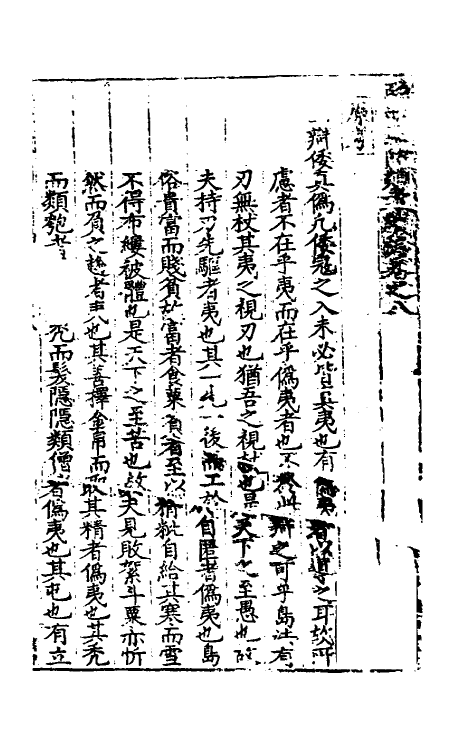 卷之八
一辯倭真僞凡倭寇之入未必皆真夷也有僞夷者以導之耳故所
慮者不在乎夷而在乎僞夷者也不然此辯之可乎島法有
刃無杖其夷之視刃也猶吾之視杖也果天下之至愚也故
夫持刃先驅者夷也其後而工於自匿者僞夷也島
俗貴富而賤貧故富者食粟貧者至以粃自給其寒而雪
不得布縷被體也是天下之至苦也故夫見敗絮斗粟亦忻
然而負之趨者夷也其善擇金帛而取其精者僞夷也其禿
而類匏者 禿而髮隱隱類僧者僞夷也其屯也有立